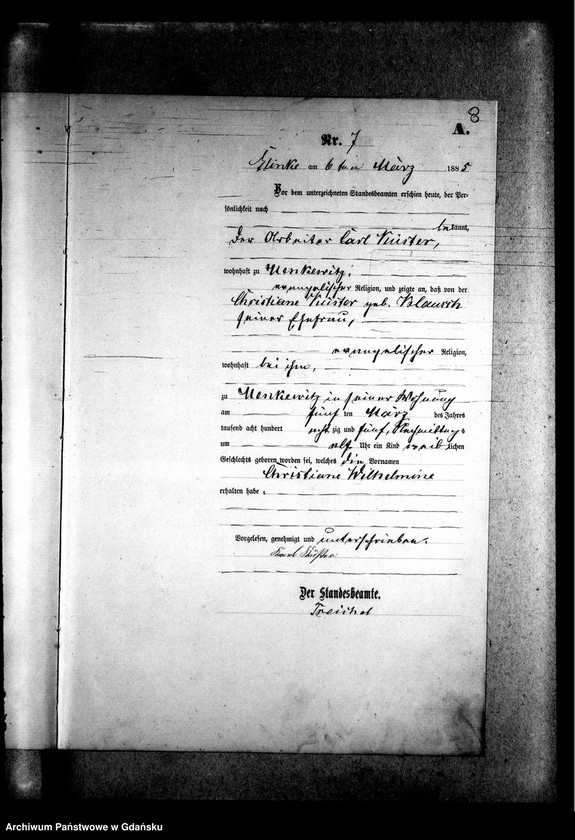 8
A.
Nr. 7
am 6 ten März 1885
Vor dem unterzeichneten Standesbeamten erschien heute, der Per-
sönlichkeit nach
bekannt,
der Arbeiter Carl Küster,
wohnhaft zu Menkewitz,
evangelischer Religion, und zeigte an, daß von der
Christiane Küster geb.
seiner Ehefrau,
evangelischer Religion,
wohnhaft bei ihm,
zu Menkewitz in seiner Wohnung
am fünf ten März des Jahres
tausend acht hundert acht zig und fünf, Nachmittags
um elf Uhr ein Kind weiblichen
Geschlechts geboren worden sei, welches die Vornamen
Christiane Wilhelmine
erhalten habe.
Vorgelesen, genehmigt und unterschrieben.
Der Standesbeamte.
Archiwum Państwowe w Gdańsku